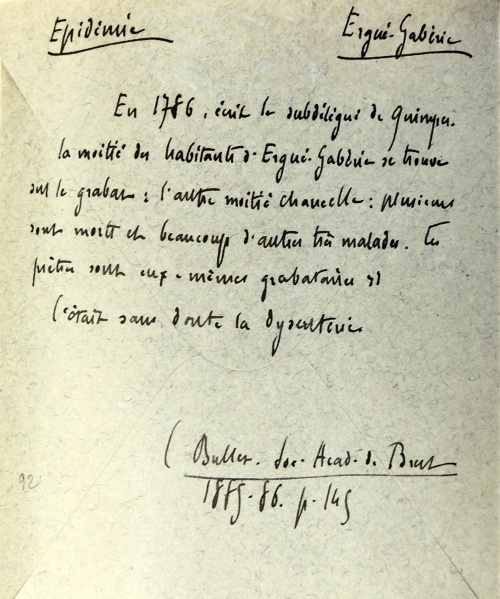 Epidémie Ergué-Gabéric
En 1786, écrit le subdélégué de Quimper,
la moitié des habitants d'Ergué-Gabéric se trouve
sur le grabat : l'autre moitié chancelle : plusieurs
sont morts et beaucoup d'autres très malades. Les
prêtres sont eux-mêmes grabataires
C'était sans doute la dysenterie
( Bullet. Soc. Acad. de Brest
1885-86. p. 145
92